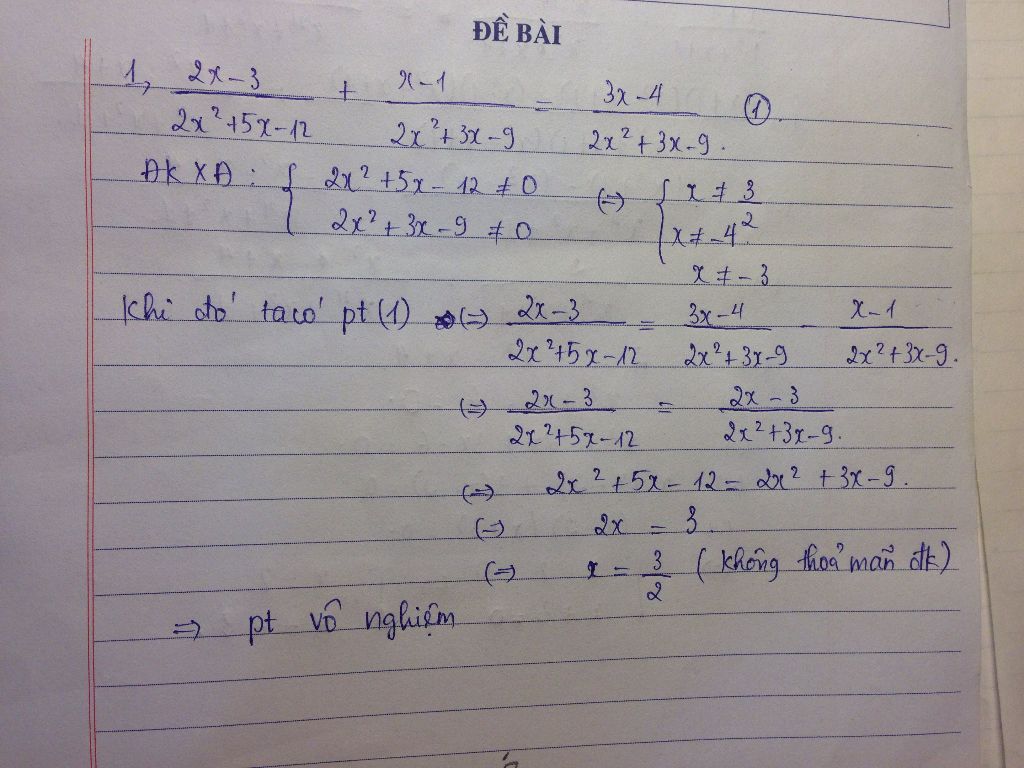 ĐỀ BÀI
1, (2x-3)/(2x²+5x-12) + (x-1)/(2x²+3x-9) = (3x-4)/(2x²+3x-9). ①.
ĐKXĐ: { 2x²+5x-12 ≠ 0 (=) { x ≠ 3/2
2x²+3x-9 ≠ 0 x ≠ -4
x ≠ -3
Khi đó ta có pt (1) (=) (2x-3)/(2x²+5x-12) = (3x-4)/(2x²+3x-9) - (x-1)/(2x²+3x-9).
(=) (2x-3)/(2x²+5x-12) = (2x-3)/(2x²+3x-9).
(=) 2x²+5x-12 = 2x²+3x-9.
(=) 2x = 3.
(=) x = 3/2 (không thoả mãn đk)
=> pt vô nghiệm